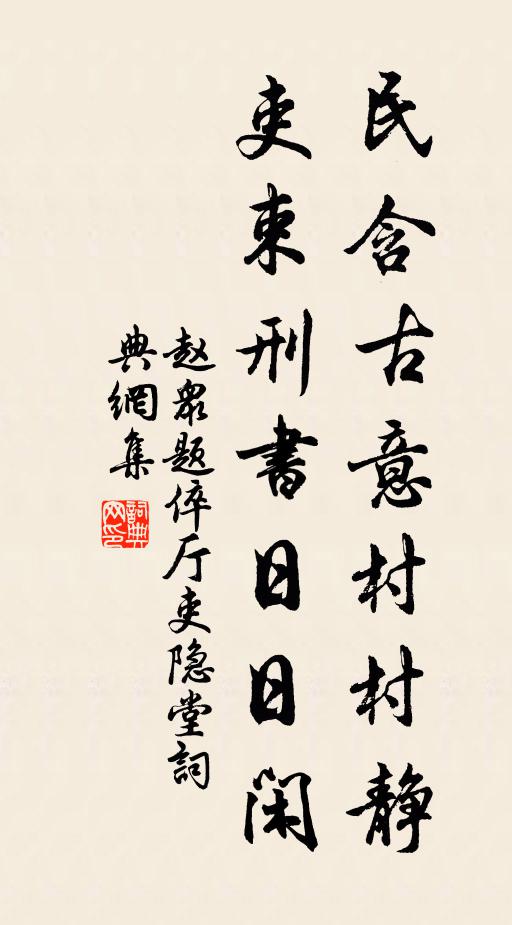 民含古意村村静
吏束刑書日日闲
赵眾题倅厅吏隐堂詞
典網集
詞典
网印